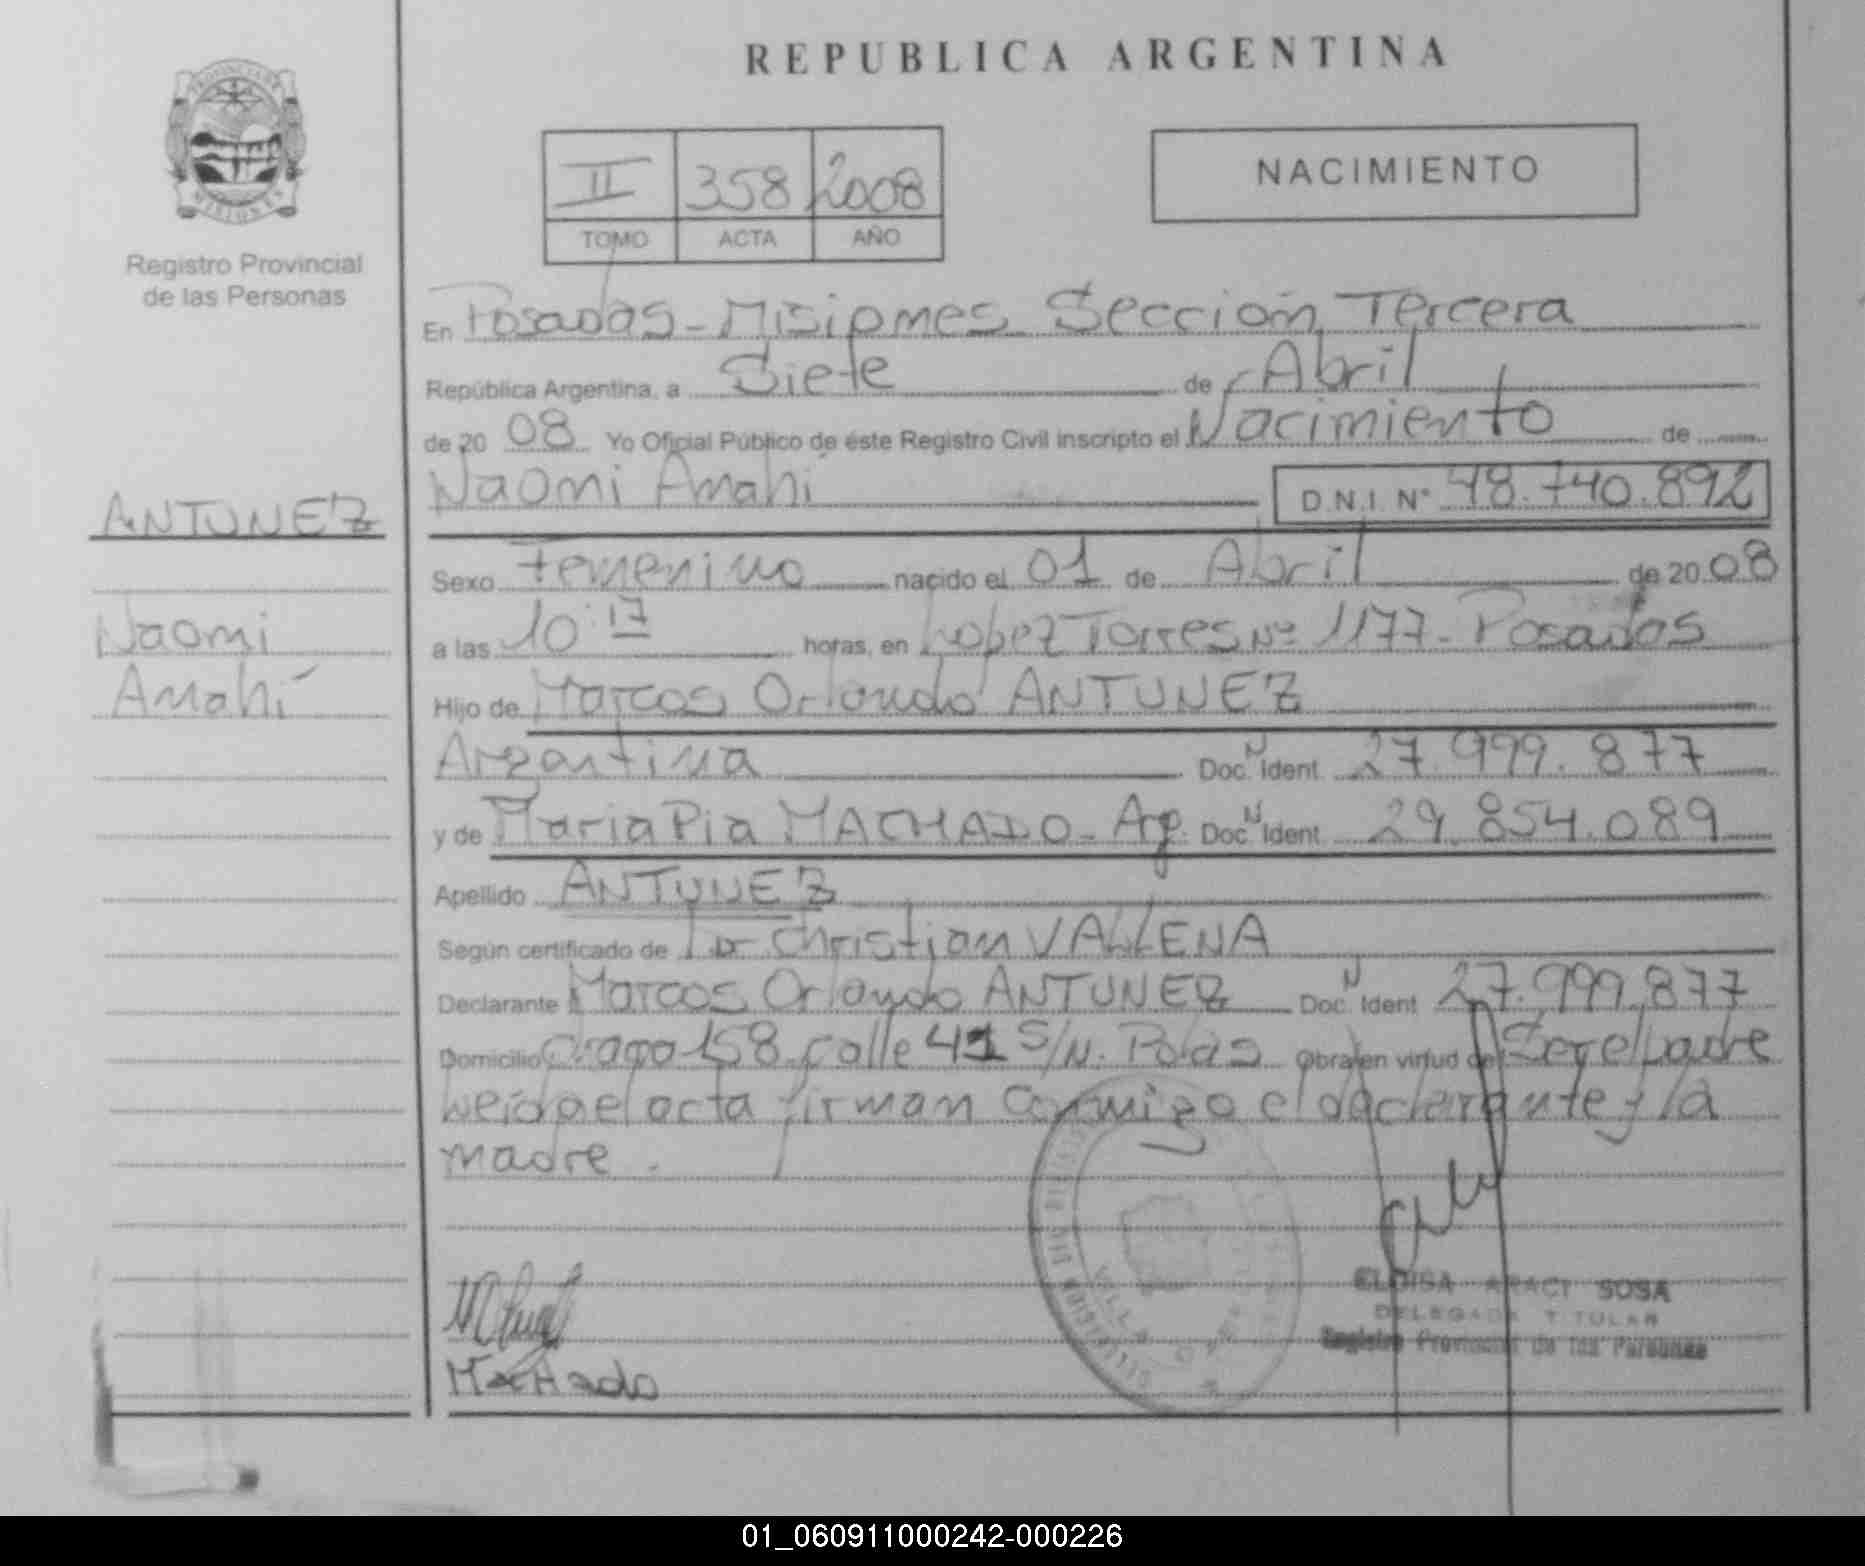 REPUBLICA ARGENTINA
PROVINCIA DE MISIONES
Registro Provincial
de las Personas
NACIMIENTO
II 358 2008
TOMO ACTA AÑO
En Posadas - Misiones Sección Tercera
República Argentina, a Siete de Abril
de 20 08 Yo Oficial Público de éste Registro Civil inscripto el Nacimiento de
Naomi Anahí D.N.I. N° 48.740.892
ANTUNEZ
Naomi
Anahí
Sexo Femenino nacido el 01 de Abril de 20 08
a las 10:17 horas, en Lopez Torres Nº 1177 - Posadas
Hijo de Marcos Orlando ANTUNEZ
Argentina Doc. N Ident. 27.999.877
y de Maria Pia MACHADO - Arg. Doc. N Ident. 29.854.089
Apellido ANTUNEZ
Según certificado de Dr. Christian VALLENA
Declarante Marcos Orlando ANTUNEZ Doc. N Ident. 27.999.877
Domicilio Chacra 158 calle 41 S/N. Pdas Obra en virtud de Ser el padre
leída el acta firman conmigo el declarante y la
madre.
ELOISA ARACI SOSA
DELEGADA TITULAR
Registro Provincial de las Personas
Machado
01_060911000242-000226